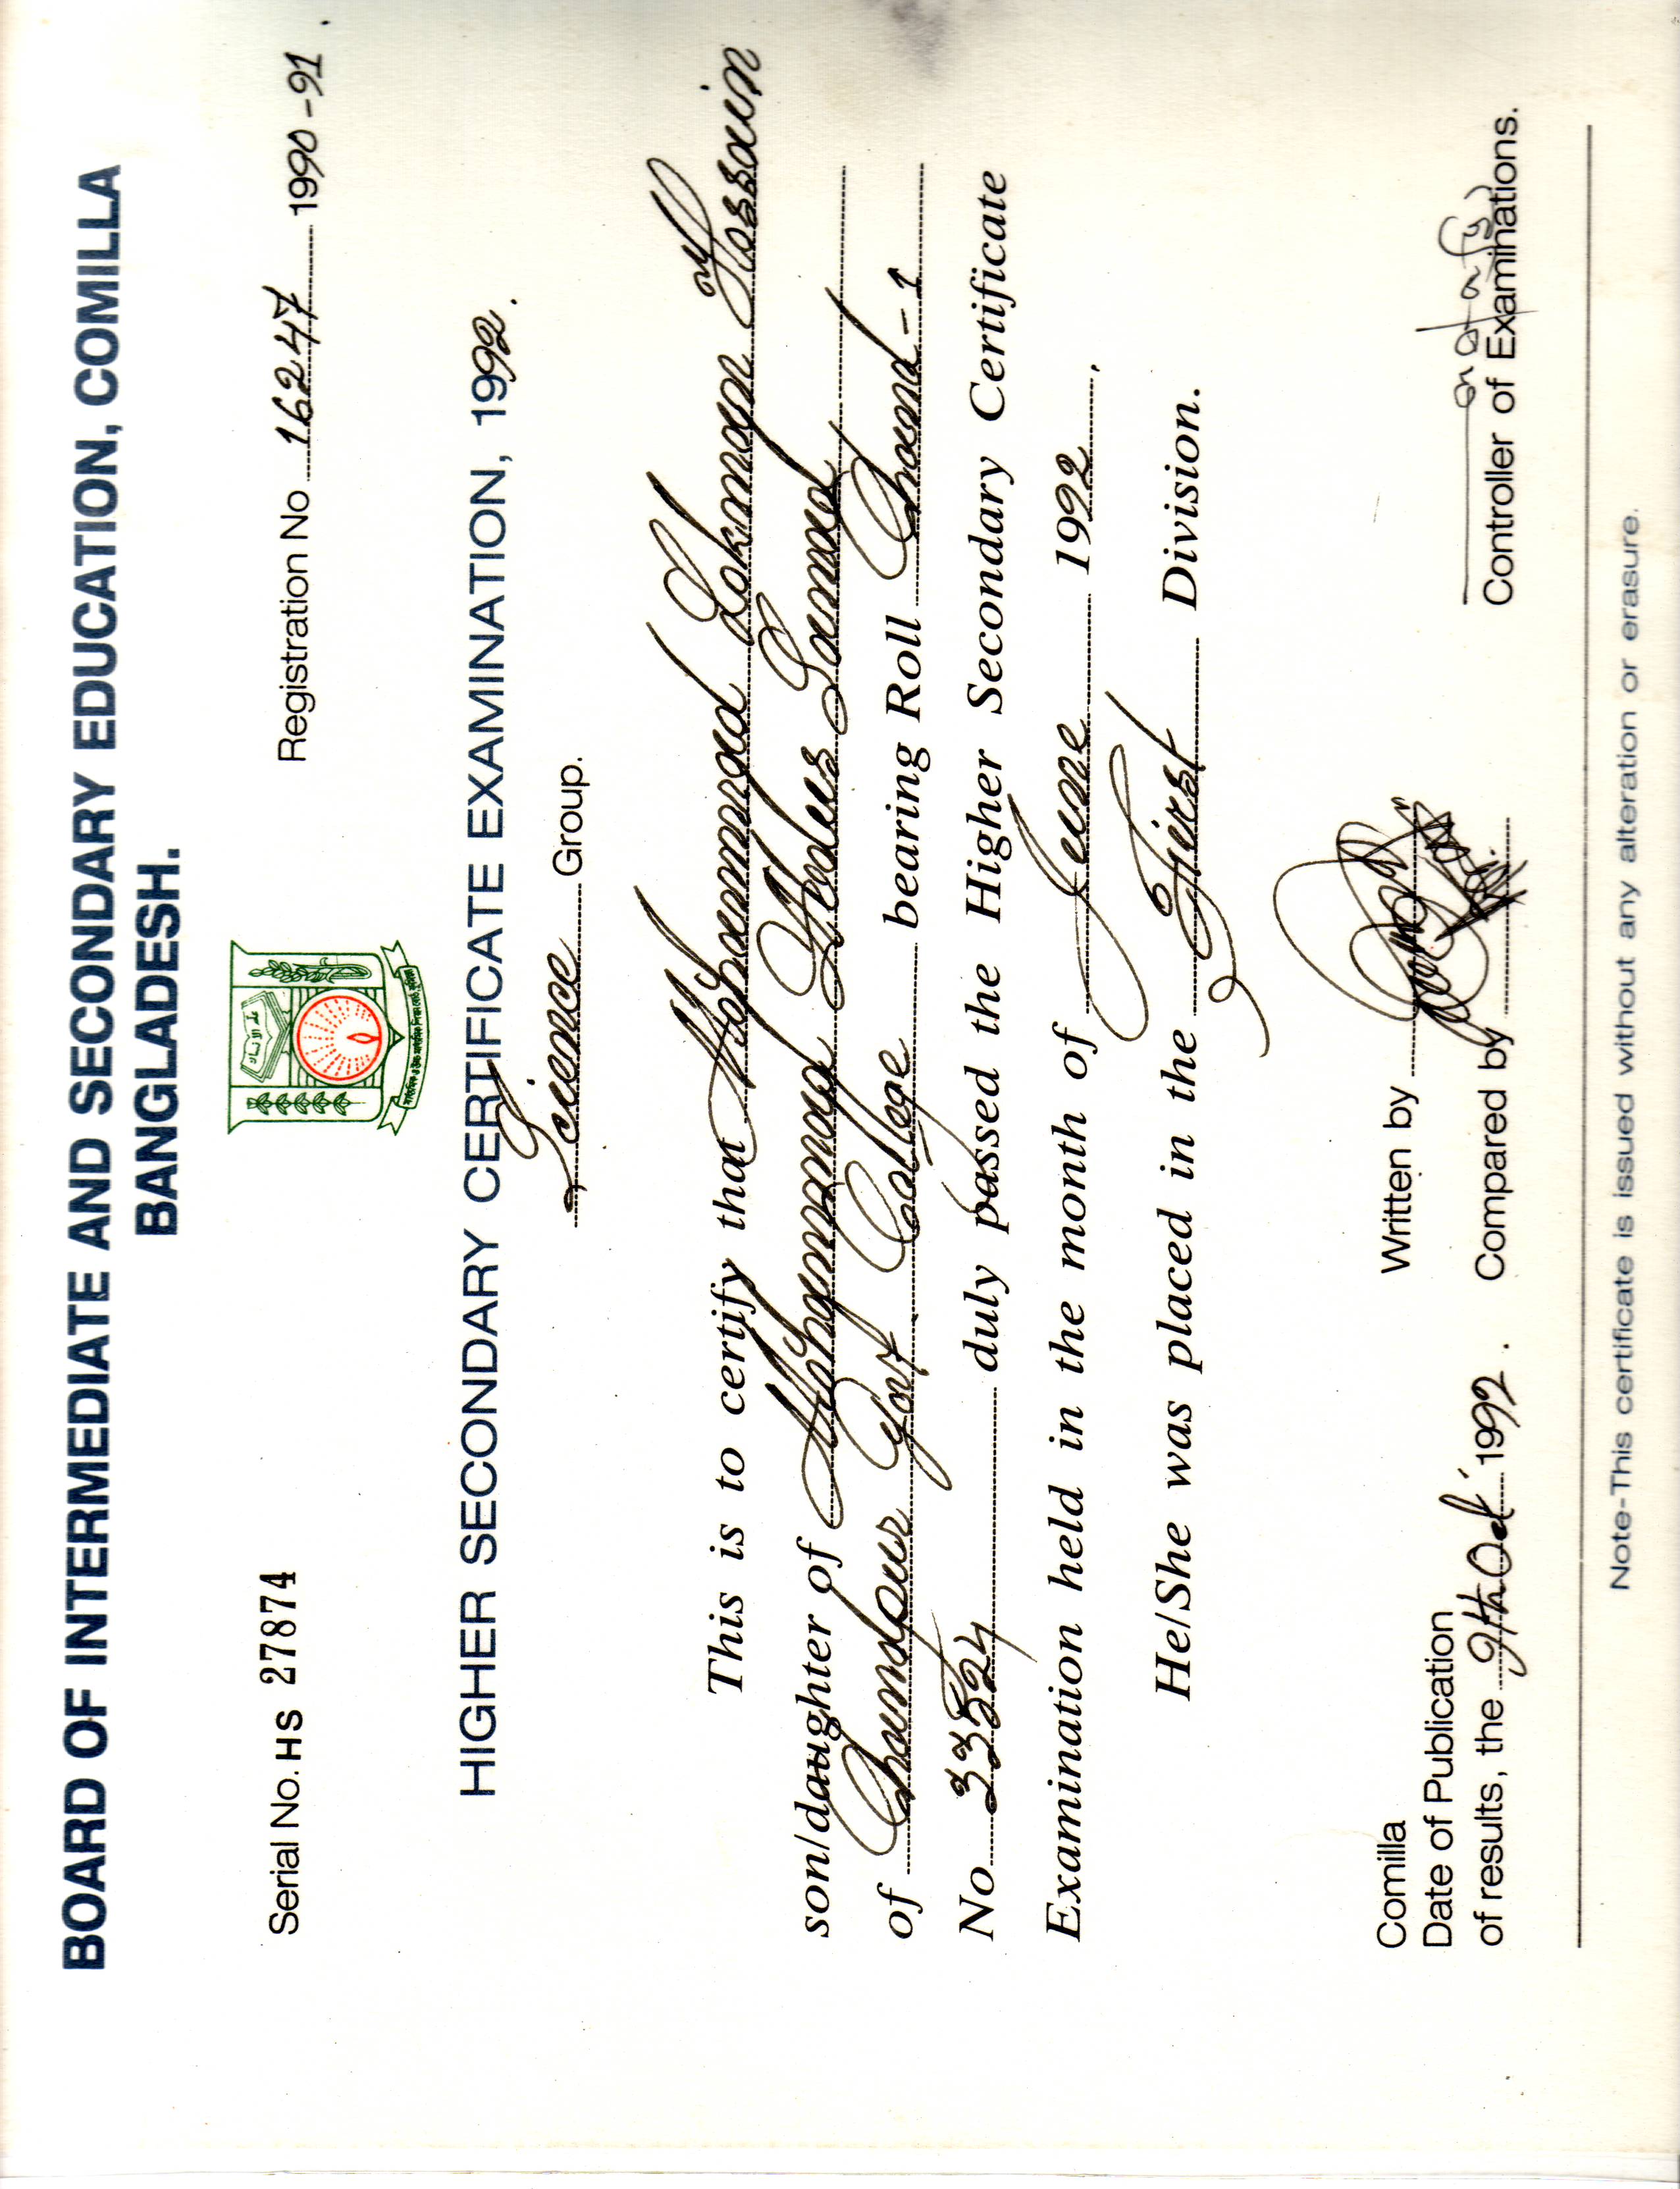 BOARD OF INTERMEDIATE AND SECONDARY EDUCATION, COMILLA
BANGLADESH.
Serial No. HS 27874
Registration No 16247 1990-91.
علم الانسان
মাধ্যমিক ও উচ্চ মাধ্যমিক শিক্ষা বোর্ড, কুমিল্লা
HIGHER SECONDARY CERTIFICATE EXAMINATION, 1992.
Science Group.
This is to certify that Mohammad Lokman Hossain
son/daughter of Mohammad Abdus Samad
of Chandpur Govt. College bearing Roll Chand-1
No 33524 duly passed the Higher Secondary Certificate
Examination held in the month of June 1992.
He/She was placed in the First Division.
Comilla
Date of Publication
of results, the 9th Oct 1992.
Written by
Compared by
Controller of Examinations.
Note-This certificate is issued without any alteration or erasure.